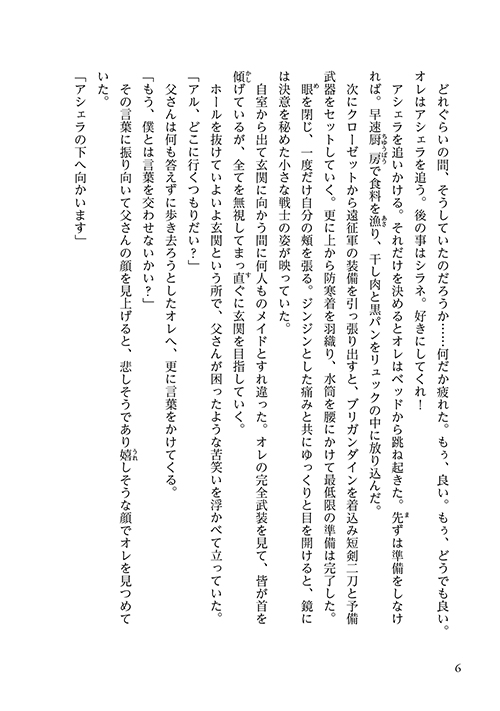 どれぐらいの間、そうしていたのだろうか……何だか疲れた。もぅ、良い。もぅ、どうでも良い。
オレはアシェラを追う。後の事はシラネ。好きにしてくれ！
アシェラを追いかける。それだけを決めるとオレはベッドから跳ね起きた。先ずは準備をしなけ
れば。早速厨房で食料を漁り、干し肉と黒パンをリュックの中に放り込んだ。
次にクローゼットから遠征軍の装備を引っ張り出すと、ブリガンダインを着込み短剣二刀と予備
武器をセットしていく。更に上から防寒着を羽織り、水筒を腰にかけて最低限の準備は完了した。
眼を閉じ、一度だけ自分の頬を張る。ジンジンとした痛みと共にゆっくりと目を開けると、鏡に
は決意を秘めた小さな戦士の姿が映っていた。
自室から出て玄関に向かう間に何人ものメイドとすれ違った。オレの完全武装を見て、皆が首を
傾げているが、全てを無視してまっ直ぐに玄関を目指していく。
ホールを抜けていよいよ玄関という所で、父さんが困ったような苦笑いを浮かべて立っていた。
「アル、どこに行くつもりだい？」
父さんは何も答えずに歩き去ろうとしたオレへ、更に言葉をかけてくる。
「もう、僕とは言葉を交わせないかい？」
その言葉に振り向いて父さんの顔を見上げると、悲しそうであり嬉しそうな顔でオレを見つめて
いた。
「アシェラの下へ向かいます」
6